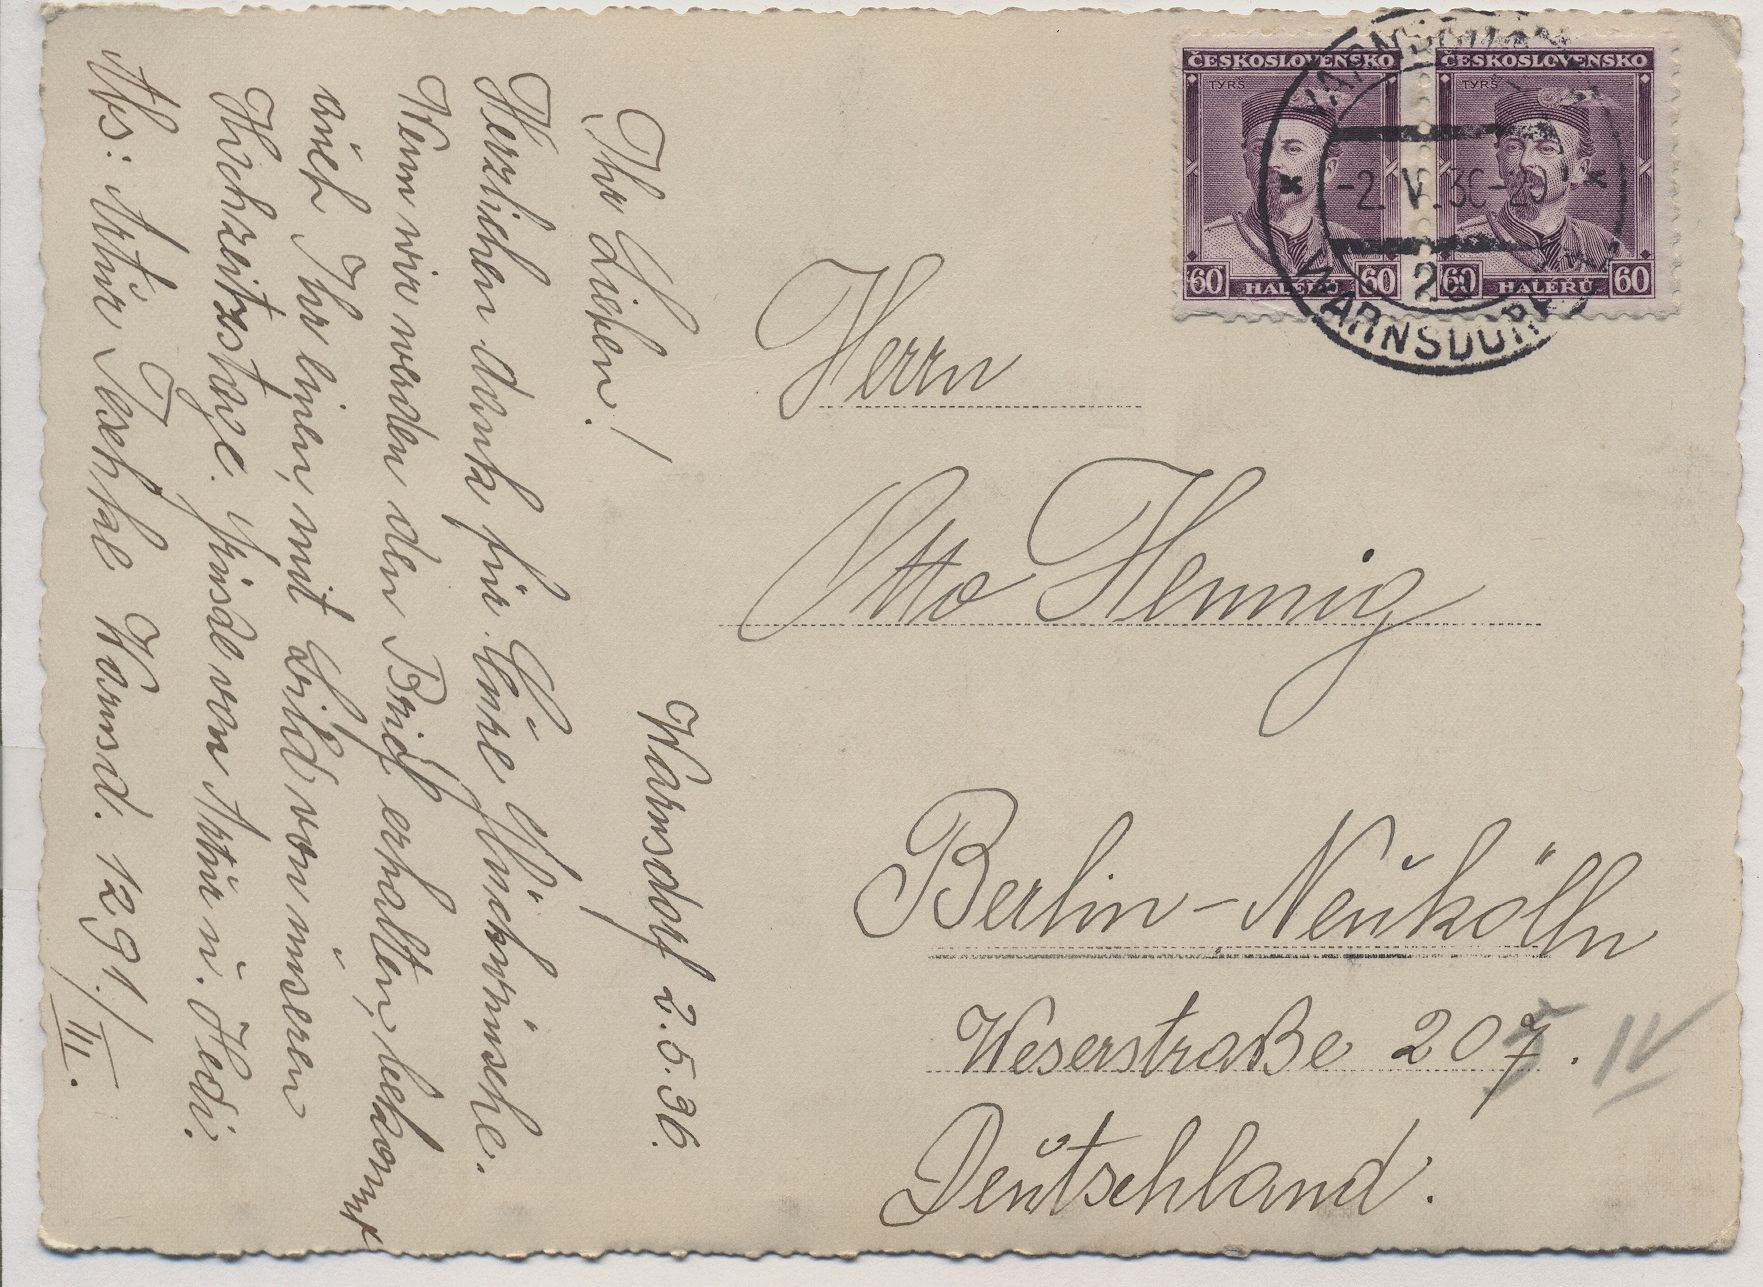 ČESKOSLOVENSKO
TYRŠ
60 HALÉŘŮ 60
ČESKOSLOVENSKO
TYRŠ
60 HALÉŘŮ 60
-2. V. 36-20
2a
WARNSDORF
Herrn
Otto Hennig
Berlin-Neukölln
Weserstraße 207.
Deutschland.
IV
Warnsdorf 2.5.36.
Ihr Lieben!
Herzlichen Dank für Eure Glückwünsche.
Wenn wir werden den Brief erhalten, bekommt
auch Ihr einen, mit Bild von unseren
Hochzeitstage. Grüsse von Artur u. Hedi.
Abs: Artur Warnsd. 1291./III.